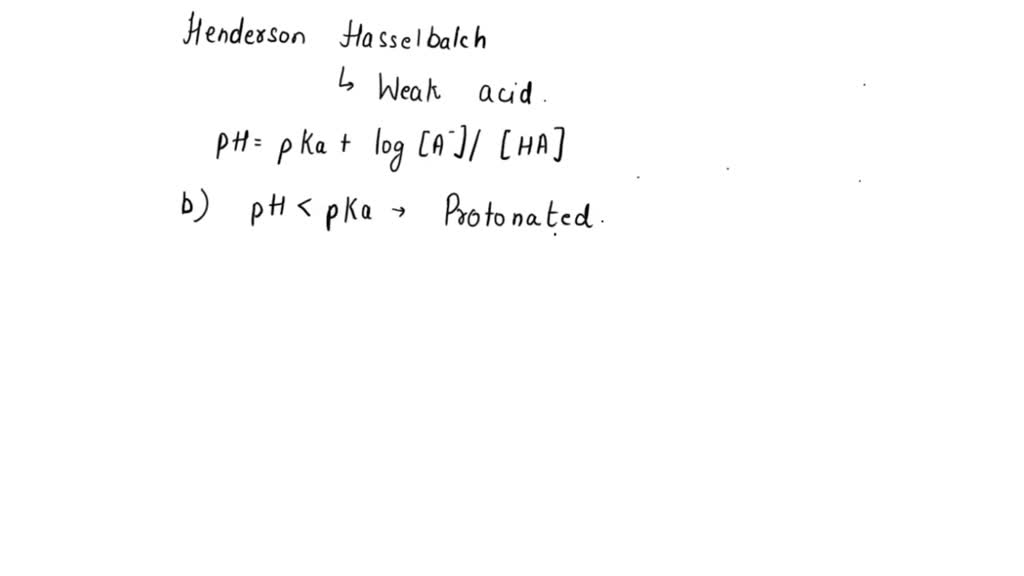 Henderson Hasselbalch
↳ Weak acid.
pH = pKa + log [A⁻]/ [HA]
b) pH < pKa → Protonated.